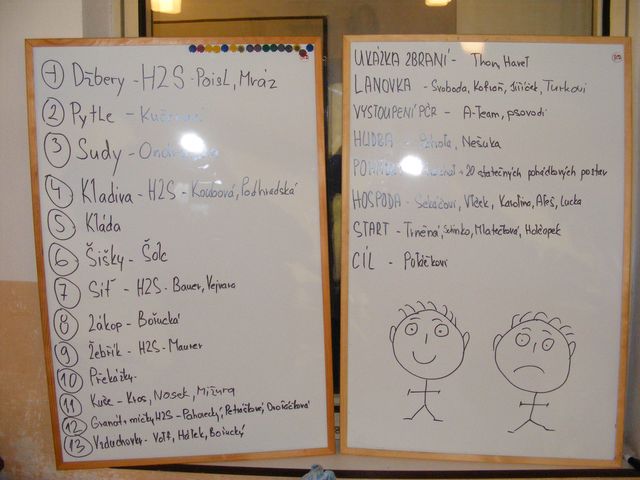 1 Džbery - H2S - Poisl, Mráz
2 Pytle -
3 Sudy -
4 Kladiva - H2S - Koubová, Podhradská
5 Kláda
6 Šišky - Šolc
7 Síť - H2S - Bauer, Vejvara
8 Zákop - Bořucká
9 Žebřík - H2S - Maurer
10 Překážky -
11 Kuše - Kros, Nosek, Mižura
12 Granát. míčky H2S - Petráčková, Dvořáčková
13 Vzduchovky - Volf, Hátlek, Bořucký
UKÁZKA ZBRANÍ - Thon, Havel
LANOVKA - Svoboda, Jiříček, Turkovi
VYSTOUPENÍ PČR - A-Team, psovodi
HUDBA - Nešuka
+ 20 statečných pohádkových postav
HOSPODA - Vlček, Karolína, Aleš, Lucka
START - Trněná, Holčapek
CÍL - Poláčkovi